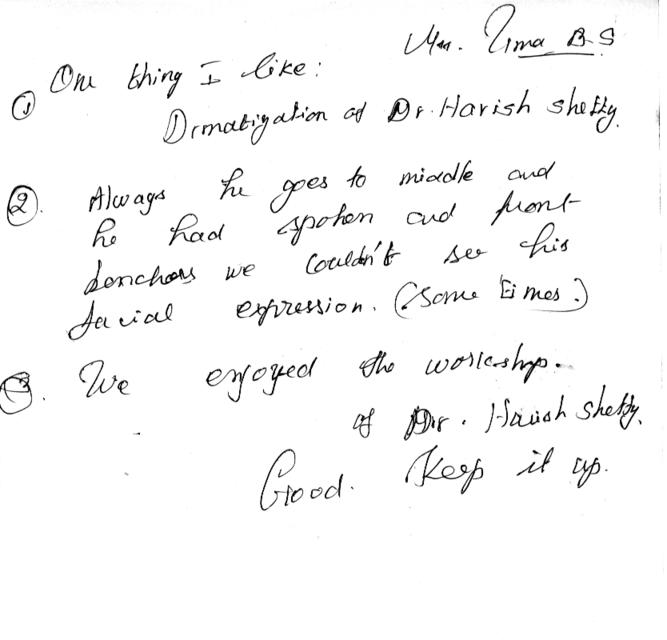 Mrs. Uma B S
① One thing I like:
Drmatization of Dr. Harish shetty.
②. Always he goes to middle and
he had spoken and front
benchers we couldn't see his
facial expression. (Some times.)
③. We enjoyed the workshop.
of Dr. Harish Shetty.
Good. Keep it up.